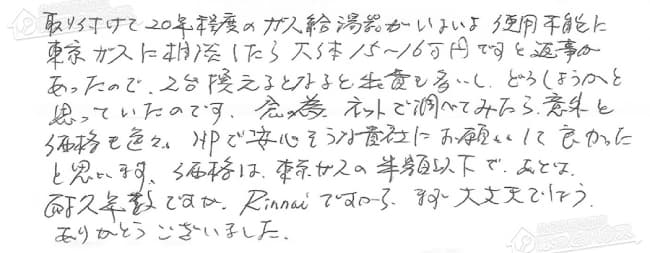 取り付けて20年程度のガス給湯器がいよいよ使用不能に
東京ガスに相談したら大体15〜16万円ですと返事が
あったので、2台換えるとなると出費も多いし、どうしようかと
思っていたのです。念の為、ネットで調べてみたら、意外と
価格も色々、HPで安心そうな貴社にお願いして良かった
と思います。価格は、東京ガスの半額以下で、あとは、
耐久年数ですが、Rinnaiですから、まず大丈夫でしょう。
ありがとうございました。